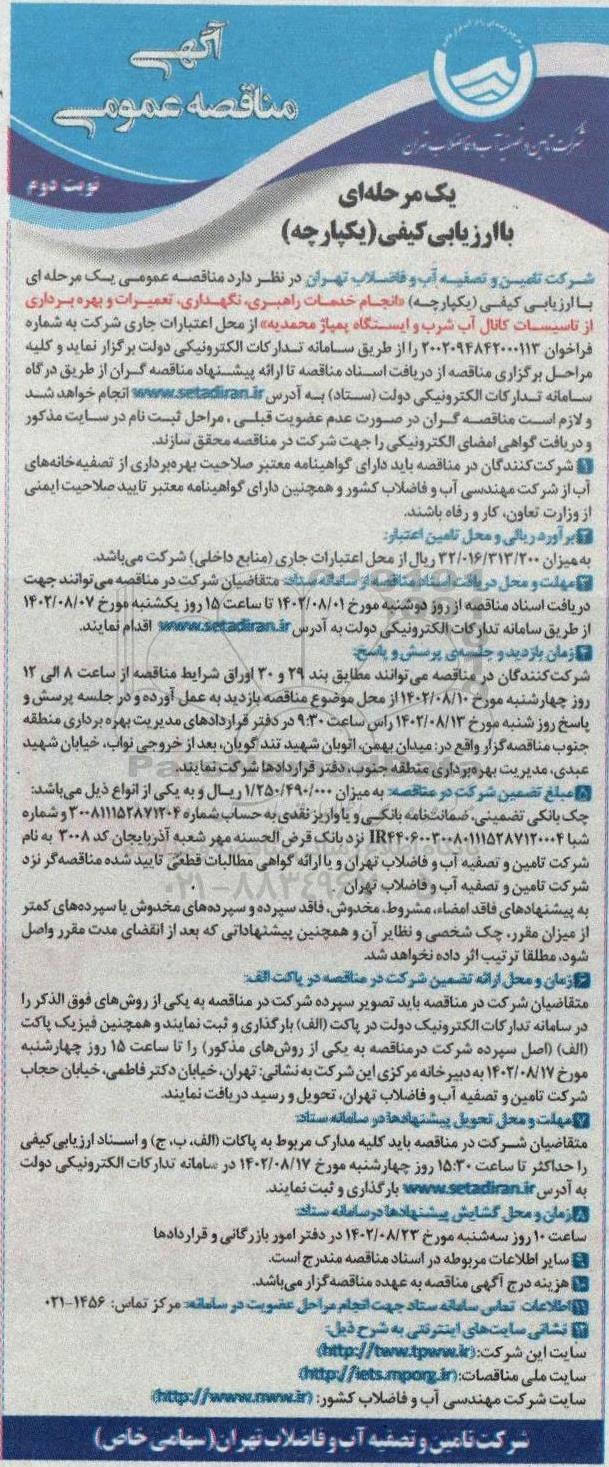 آگهی
مناقصه عمومی
شرکت تامین و تصفیه آب و فاضلاب تهران
نوبت دوم
یک مرحله‌ای
با ارزیابی کیفی (یکپارچه)
شرکت تامین و تصفیه آب و فاضلاب تهران در نظر دارد مناقصه عمومی یک مرحله ای
با ارزیابی کیفی (یکپارچه) «انجام خدمات راهبری، نگهداری، تعمیرات و بهره برداری
از تاسیسات کانال آب شرب و ایستگاه پمپاژ محمدیه» از محل اعتبارات جاری شرکت به شماره
فراخوان ۲۰۰۲۰۹۴۸۴۲۰۰۰۱۱۳ را از طریق سامانه تدارکات الکترونیکی دولت برگزار نماید و کلیه
مراحل برگزاری مناقصه از دریافت اسناد مناقصه تا ارائه پیشنهاد مناقصه گران از طریق درگاه
سامانه تدارکات الکترونیکی دولت (ستاد) به آدرس www.setadiran.ir انجام خواهد شد
و لازم است مناقصه گران در صورت عدم عضویت قبلی، مراحل ثبت نام در سایت مذکور
و دریافت گواهی امضای الکترونیکی را جهت شرکت در مناقصه محقق سازند.
۱ شرکت‌کنندگان در مناقصه باید دارای گواهینامه معتبر صلاحیت بهره‌برداری از تصفیه‌خانه‌های
آب از شرکت مهندسی آب و فاضلاب کشور و همچنین دارای گواهینامه معتبر تایید صلاحیت ایمنی
از وزارت تعاون، کار و رفاه باشند.
۲ برآورد ریالی و محل تامین اعتبار:
به میزان ۳۲/۰۱۶/۳۱۳/۲۰۰ ریال از محل اعتبارات جاری (منابع داخلی) شرکت می‌باشد.
۳ مهلت و محل دریافت اسناد مناقصه از سامانه ستاد: متقاضیان شرکت در مناقصه می‌توانند جهت
دریافت اسناد مناقصه از روز دوشنبه مورخ ۱۴۰۲/۰۸/۰۱ تا ساعت ۱۵ روز یکشنبه مورخ ۱۴۰۲/۰۸/۰۷
از طریق سامانه تدارکات الکترونیکی دولت به آدرس www.setadiran.ir اقدام نمایند.
۴ زمان بازدید و جلسه‌ی پرسش و پاسخ:
شرکت‌کنندگان در مناقصه می‌توانند مطابق بند ۲۹ و ۳۰ اوراق شرایط مناقصه از ساعت ۸ الی ۱۲
روز چهارشنبه مورخ ۱۴۰۲/۰۸/۱۰ از محل موضوع مناقصه بازدید به عمل آورده و در جلسه پرسش و
پاسخ روز شنبه مورخ ۱۴۰۲/۰۸/۱۳ راس ساعت ۹:۳۰ در دفتر قراردادهای مدیریت بهره برداری منطقه
جنوب مناقصه‌گزار واقع در: میدان بهمن، اتوبان شهید تندگویان، بعد از خروجی نواب، خیابان شهید
عبدی، مدیریت بهره‌برداری منطقه جنوب، دفتر قراردادها شرکت نمایند.
۵ مبلغ تضمین شرکت در مناقصه: به میزان ۱/۲۵۰/۴۹۰/۰۰۰ ریال و به یکی از انواع ذیل می‌باشد:
چک بانکی تضمینی، ضمانت‌نامه بانکی و یا واریز نقدی به حساب شماره ۳۰۰۸۱۱۱۵۲۸۷۱۲۰۴ و شماره
شبا نزد بانک قرض الحسنه مهر شعبه آذربایجان کد ۳۰۰۸ به نام
شرکت تامین و تصفیه آب و فاضلاب تهران و یا ارائه گواهی مطالبات قطعی تایید شده مناقصه‌گر نزد
شرکت تامین و تصفیه آب و فاضلاب تهران.
به پیشنهادهای فاقد امضاء، مشروط، مخدوش، فاقد سپرده و سپرده‌های مخدوش یا سپرده‌های کمتر
از میزان مقرر، چک شخصی و نظایر آن و همچنین پیشنهاداتی که بعد از انقضای مدت مقرر واصل
شود، مطلقا ترتیب اثر داده نخواهد شد.
۶ زمان و محل ارائه تضمین شرکت در مناقصه در پاکت الف:
متقاضیان شرکت در مناقصه باید تصویر سپرده شرکت در مناقصه به یکی از روش‌های فوق الذکر را
در سامانه تدارکات الکترونیک دولت در پاکت (الف) بارگذاری و ثبت نمایند و همچنین فیزیک پاکت
(الف) (اصل سپرده شرکت درمناقصه به یکی از روش‌های مذکور) را تا ساعت ۱۵ روز چهارشنبه
مورخ ۱۴۰۲/۰۸/۱۷ به دبیرخانه مرکزی این شرکت به نشانی: تهران، خیابان دکتر فاطمی، خیابان حجاب
شرکت تامین و تصفیه آب و فاضلاب تهران، تحویل و رسید دریافت نمایند.
۷ مهلت و محل تحویل پیشنهادها در سامانه ستاد:
متقاضیان شرکت در مناقصه باید کلیه مدارک مربوط به پاکات (الف، ب، ج) و اسناد ارزیابی کیفی
را حداکثر تا ساعت ۱۵:۳۰ روز چهارشنبه مورخ ۱۴۰۲/۰۸/۱۷ در سامانه تدارکات الکترونیکی دولت
به آدرس www.setadiran.ir بارگذاری و ثبت نمایند.
۸ زمان و محل گشایش پیشنهادها در سامانه ستاد:
ساعت ۱۰ روز سه‌شنبه مورخ ۱۴۰۲/۰۸/۲۳ در دفتر امور بازرگانی و قراردادها
۹ سایر اطلاعات مربوطه در اسناد مناقصه مندرج است.
۱۰ هزینه درج آگهی مناقصه به عهده مناقصه‌گزار می‌باشد.
۱۱ اطلاعات تماس سامانه ستاد جهت انجام مراحل عضویت در سامانه: مرکز تماس: ۱۴۵۶-۰۲۱
۱۲ نشانی سایت‌های اینترنتی به شرح ذیل:
سایت این شرکت: (http://tww.tpww.ir)
سایت ملی مناقصات: (http://iets.mporg.ir)
سایت شرکت مهندسی آب و فاضلاب کشور: (http://www.nww.ir)
شرکت تامین و تصفیه آب و فاضلاب تهران (سهامی خاص)